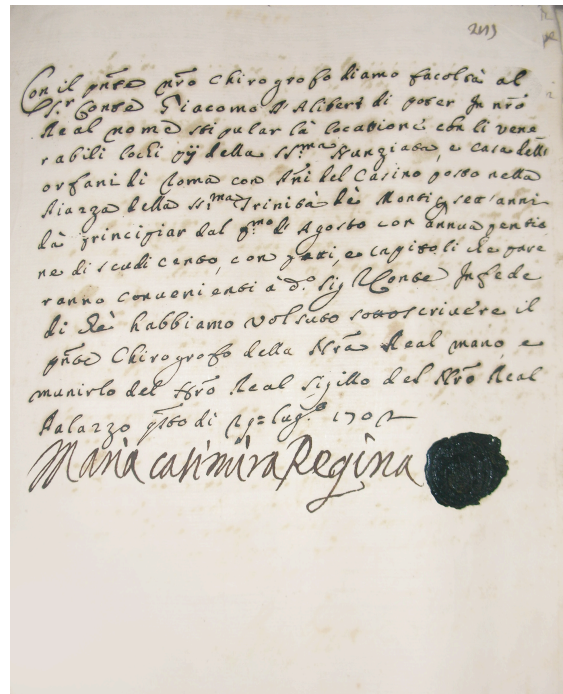 Con il pnte nro Chirografo diamo facoltà al
Sr Conte Giacomo d'Alibert di poter In nrõ
Real nome stipular la locatione con li vene
rabili lochi pij della SSma Nunziata, e casa delli
orfani di Roma con del Casino posto nella
Piazza della SSma Trinità dè Monti p sei anni
dà principiar dal pmo di Agosto con annua pentio
ne di scudi cento, con patti e capitoli che pare
ranno convenienti à do Sig Conte In fede
di chè habbiamo volsuto sottoscrivere il
pnte Chirografo della Nrã Real mano, e
munirlo del Nrõ Real sigillo del Nrõ Real
Palazzo qsto di lugo 1702
Maria Casimira Regina